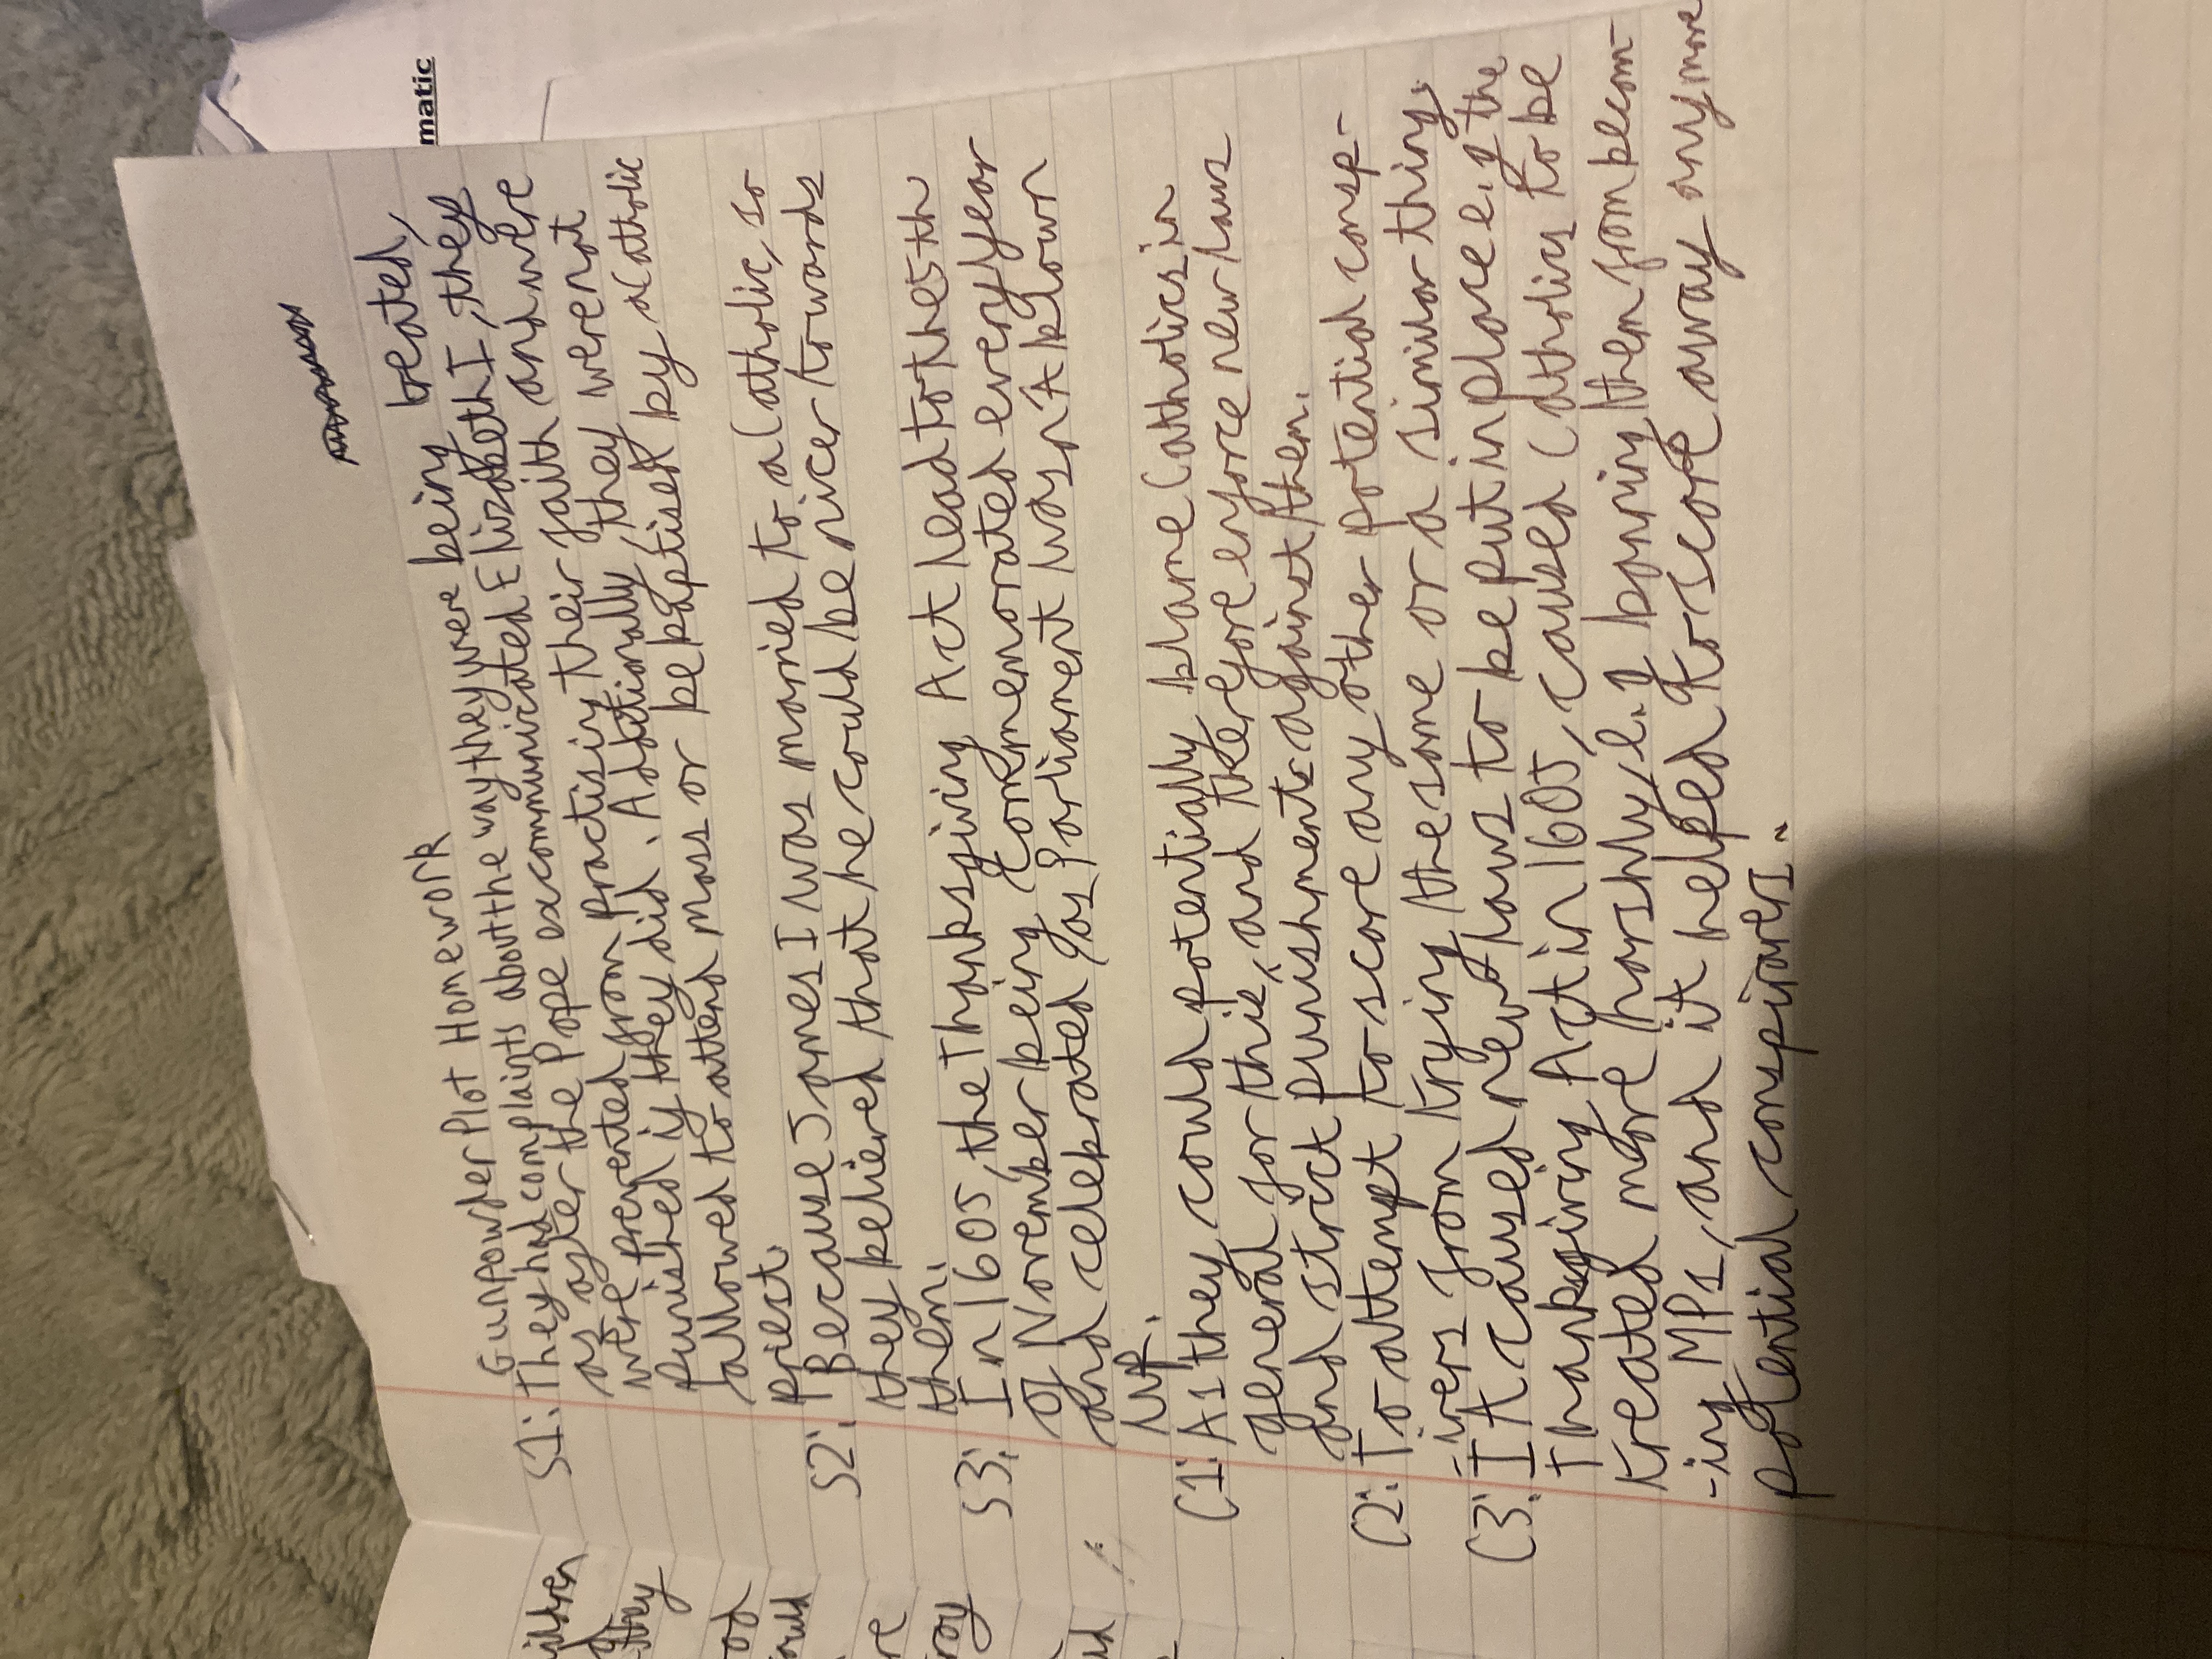 matic
Gunpowder Plot Homework
S1: They had complaints about the way they were being treated,
as after the Pope excommunicated Elizabeth I, they
were prevented from practising their faith and were
punished if they did. Additionally, they were not
allowed to attend mass or be baptised by a Catholic
priest.
S2: Because James I was married to a Catholic, so
they believed that he could be nicer towards
them.
S3: In 1605, the Thanksgiving Act lead to the 5th
of November being commemorated every year
and celebrated as Parliament wasn't blown
up.
C1: As they could potentially blame Catholics in
general for this, and therefore enforce new laws
and strict punishments against them.
C2: To attempt to scare any other potential consp-
-irers from trying the same or a similar thing.
C3: It caused new laws to be put in place e.g the
Thanksgiving Act in 1605, caused Catholics to be
treated more harshly e.g banning them from becom-
-ing MPs, and it helped to scare away any more
potential conspirers.
ildren
they
od
ould
re
roy